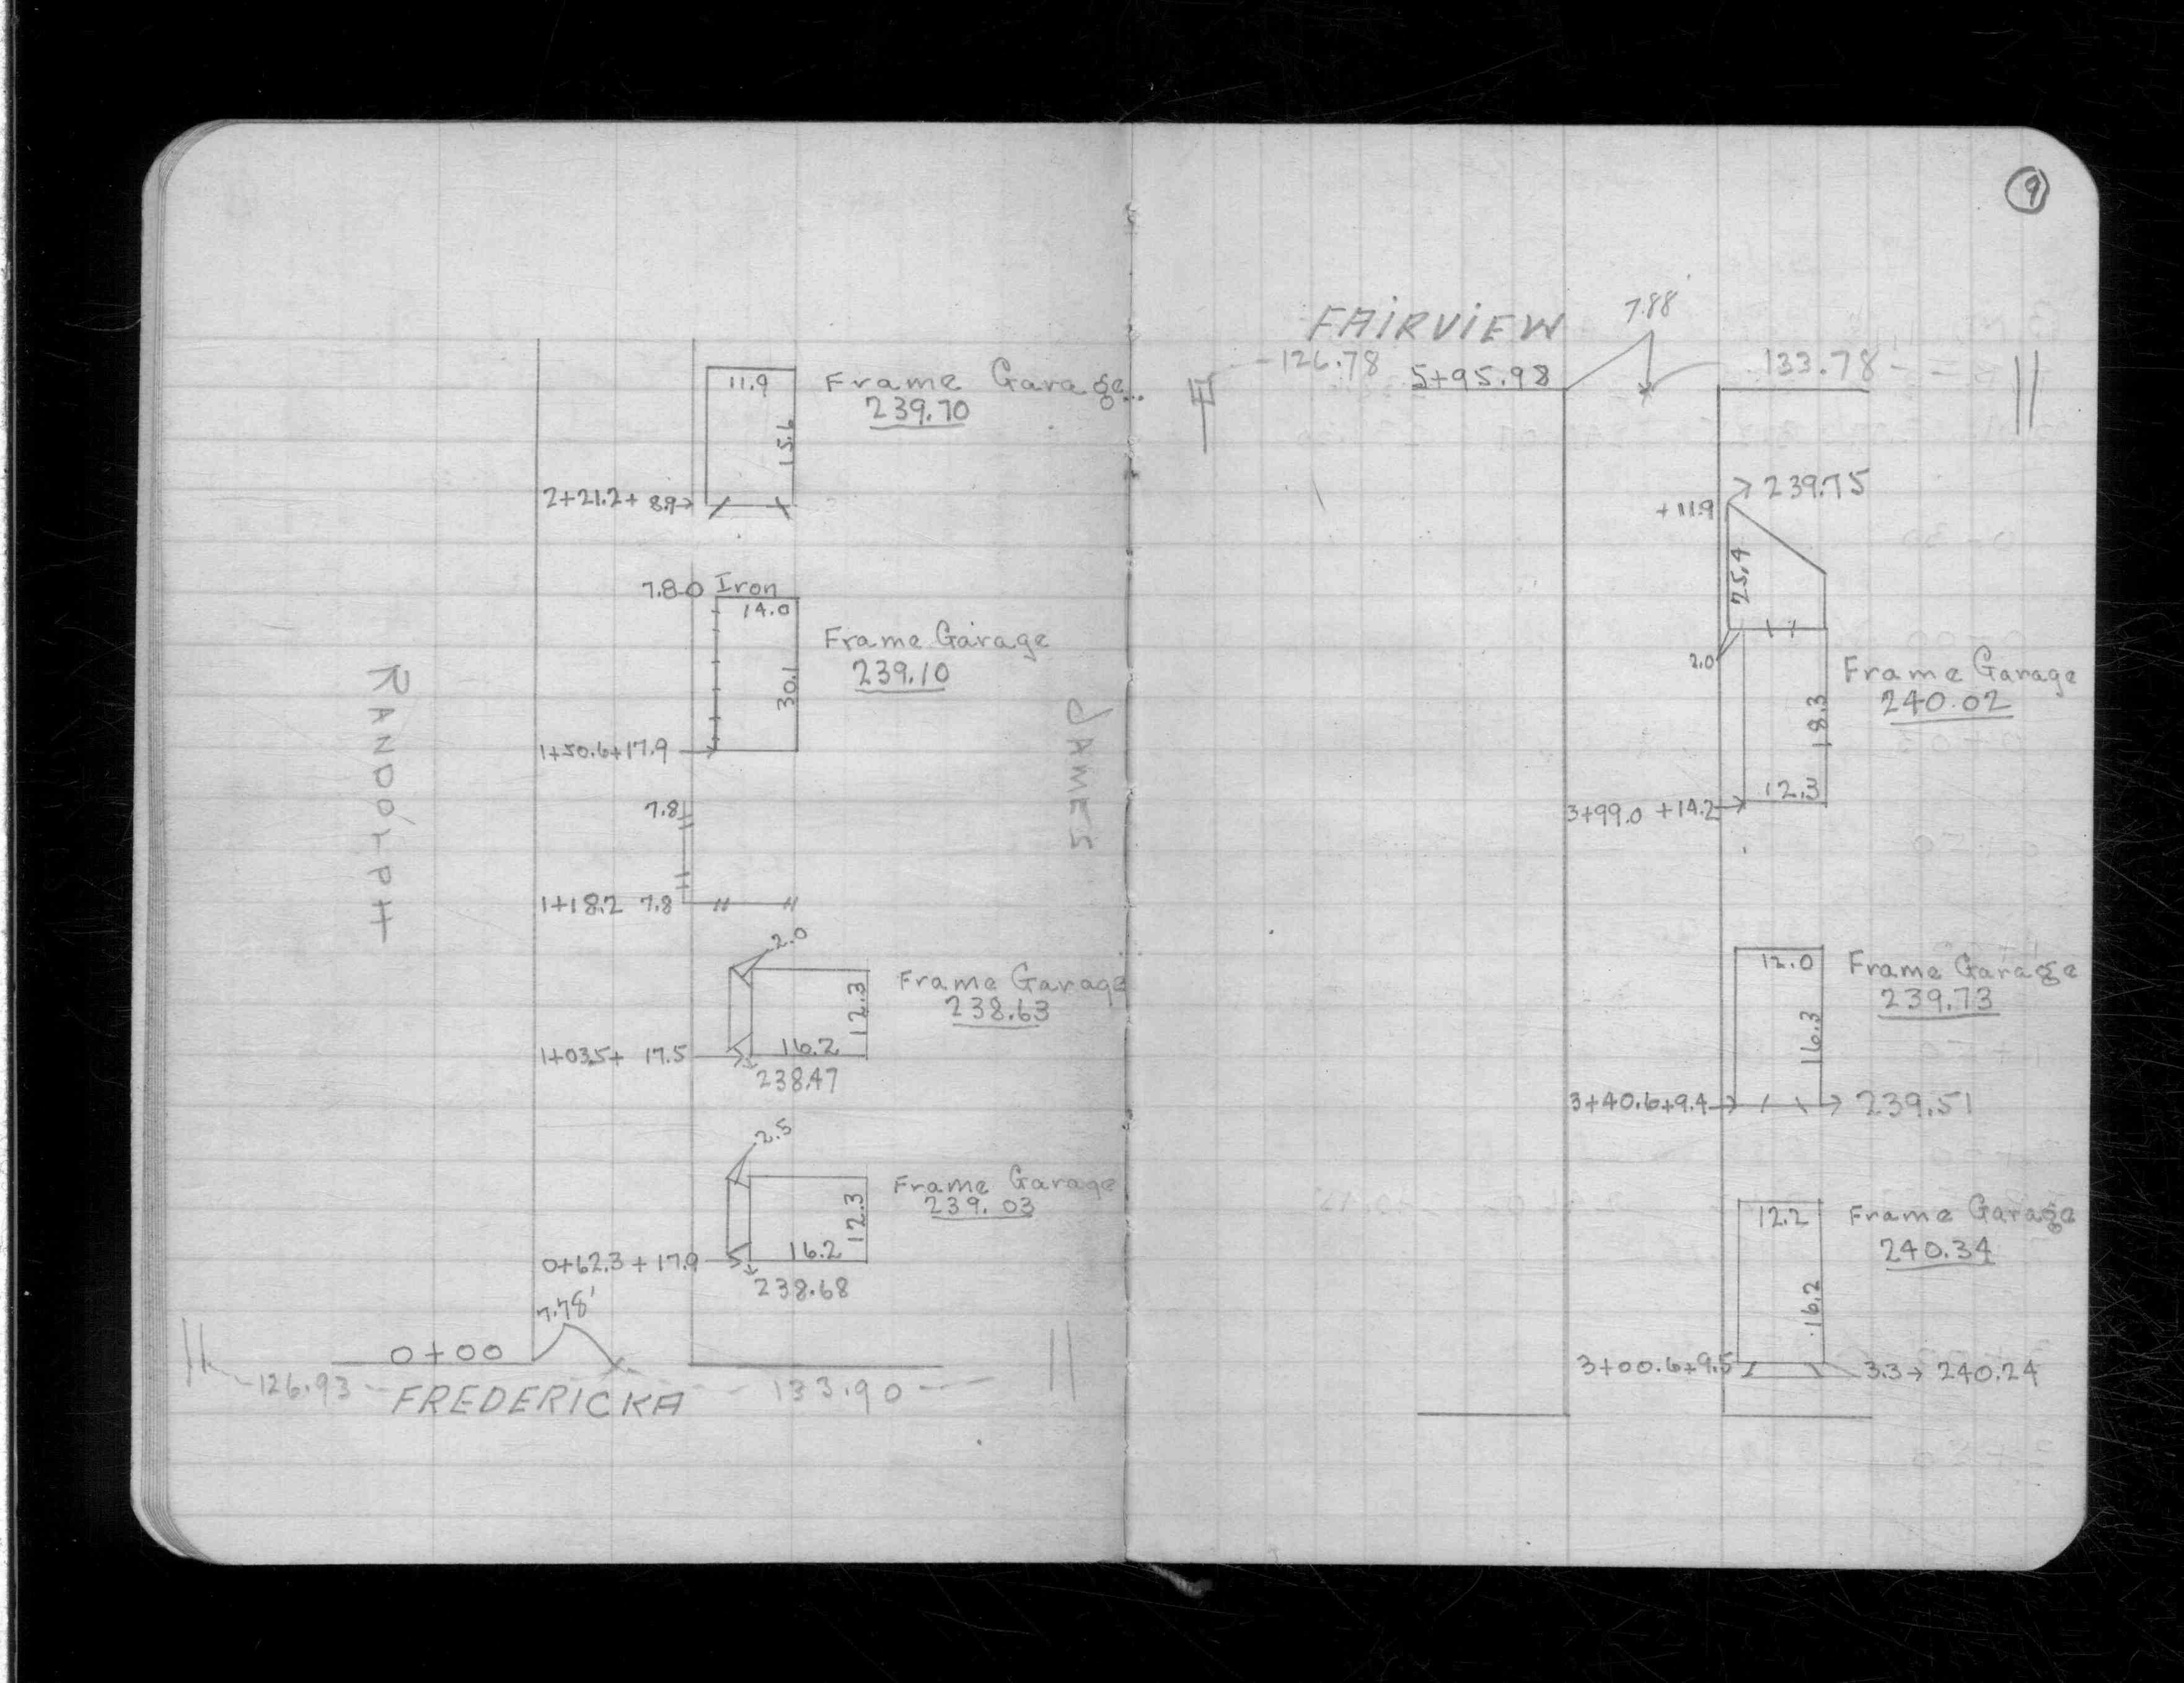 11.9
Frame Garage
239.70
15.6
2+21.2+ 8.9
7.8-0 Iron
14.0
Frame Garage
239.10
30.1
1+50.6+17.9
RANDOLPH
JAMES
7.8
1+18.2 7.8
2.0
Frame Garage
238.63
12.3
1+03.5+ 17.5
16.2
238.47
2.5
Frame Garage
239.03
12.3
16.2
0+62.3+17.9
238.68
7.78'
0+00
126.93
133.90
FREDERICKA
9
FAIRVIEW
7.88
126.78
5+95.98
133.78
239.75
+11.9
25.4
2.0
Frame Garage
240.02
18.3
12.3
3+99.0 +14.2
12.0
Frame Garage
239.73
16.3
3+40.6+9.4
239.51
12.2
Frame Garage
240.34
16.2
3+00.6+9.5
3.3→ 240.24